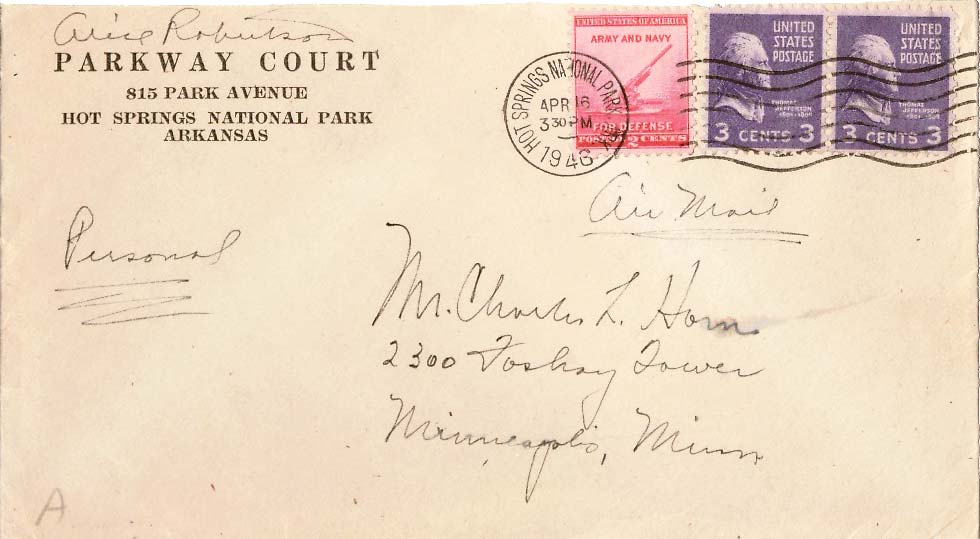 Alice Robertson
PARKWAY COURT
815 PARK AVENUE
HOT SPRINGS NATIONAL PARK
ARKANSAS
HOT SPRINGS NATIONAL PARK ARK.
APR 16
3 30 PM
1946
UNITED STATES OF AMERICA
ARMY AND NAVY
FOR DEFENSE
POSTAGE 2 CENTS
UNITED
STATES
POSTAGE
THOMAS
JEFFERSON
3 CENTS 3
UNITED
STATES
POSTAGE
THOMAS
JEFFERSON
3 CENTS 3
Air Mail
Personal
Mr. Charles L. Horn
2300 Foshay Tower
Minneapolis, Minn
A